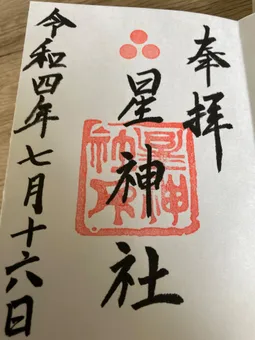 奉拝
星神社
令和四年七月十六日